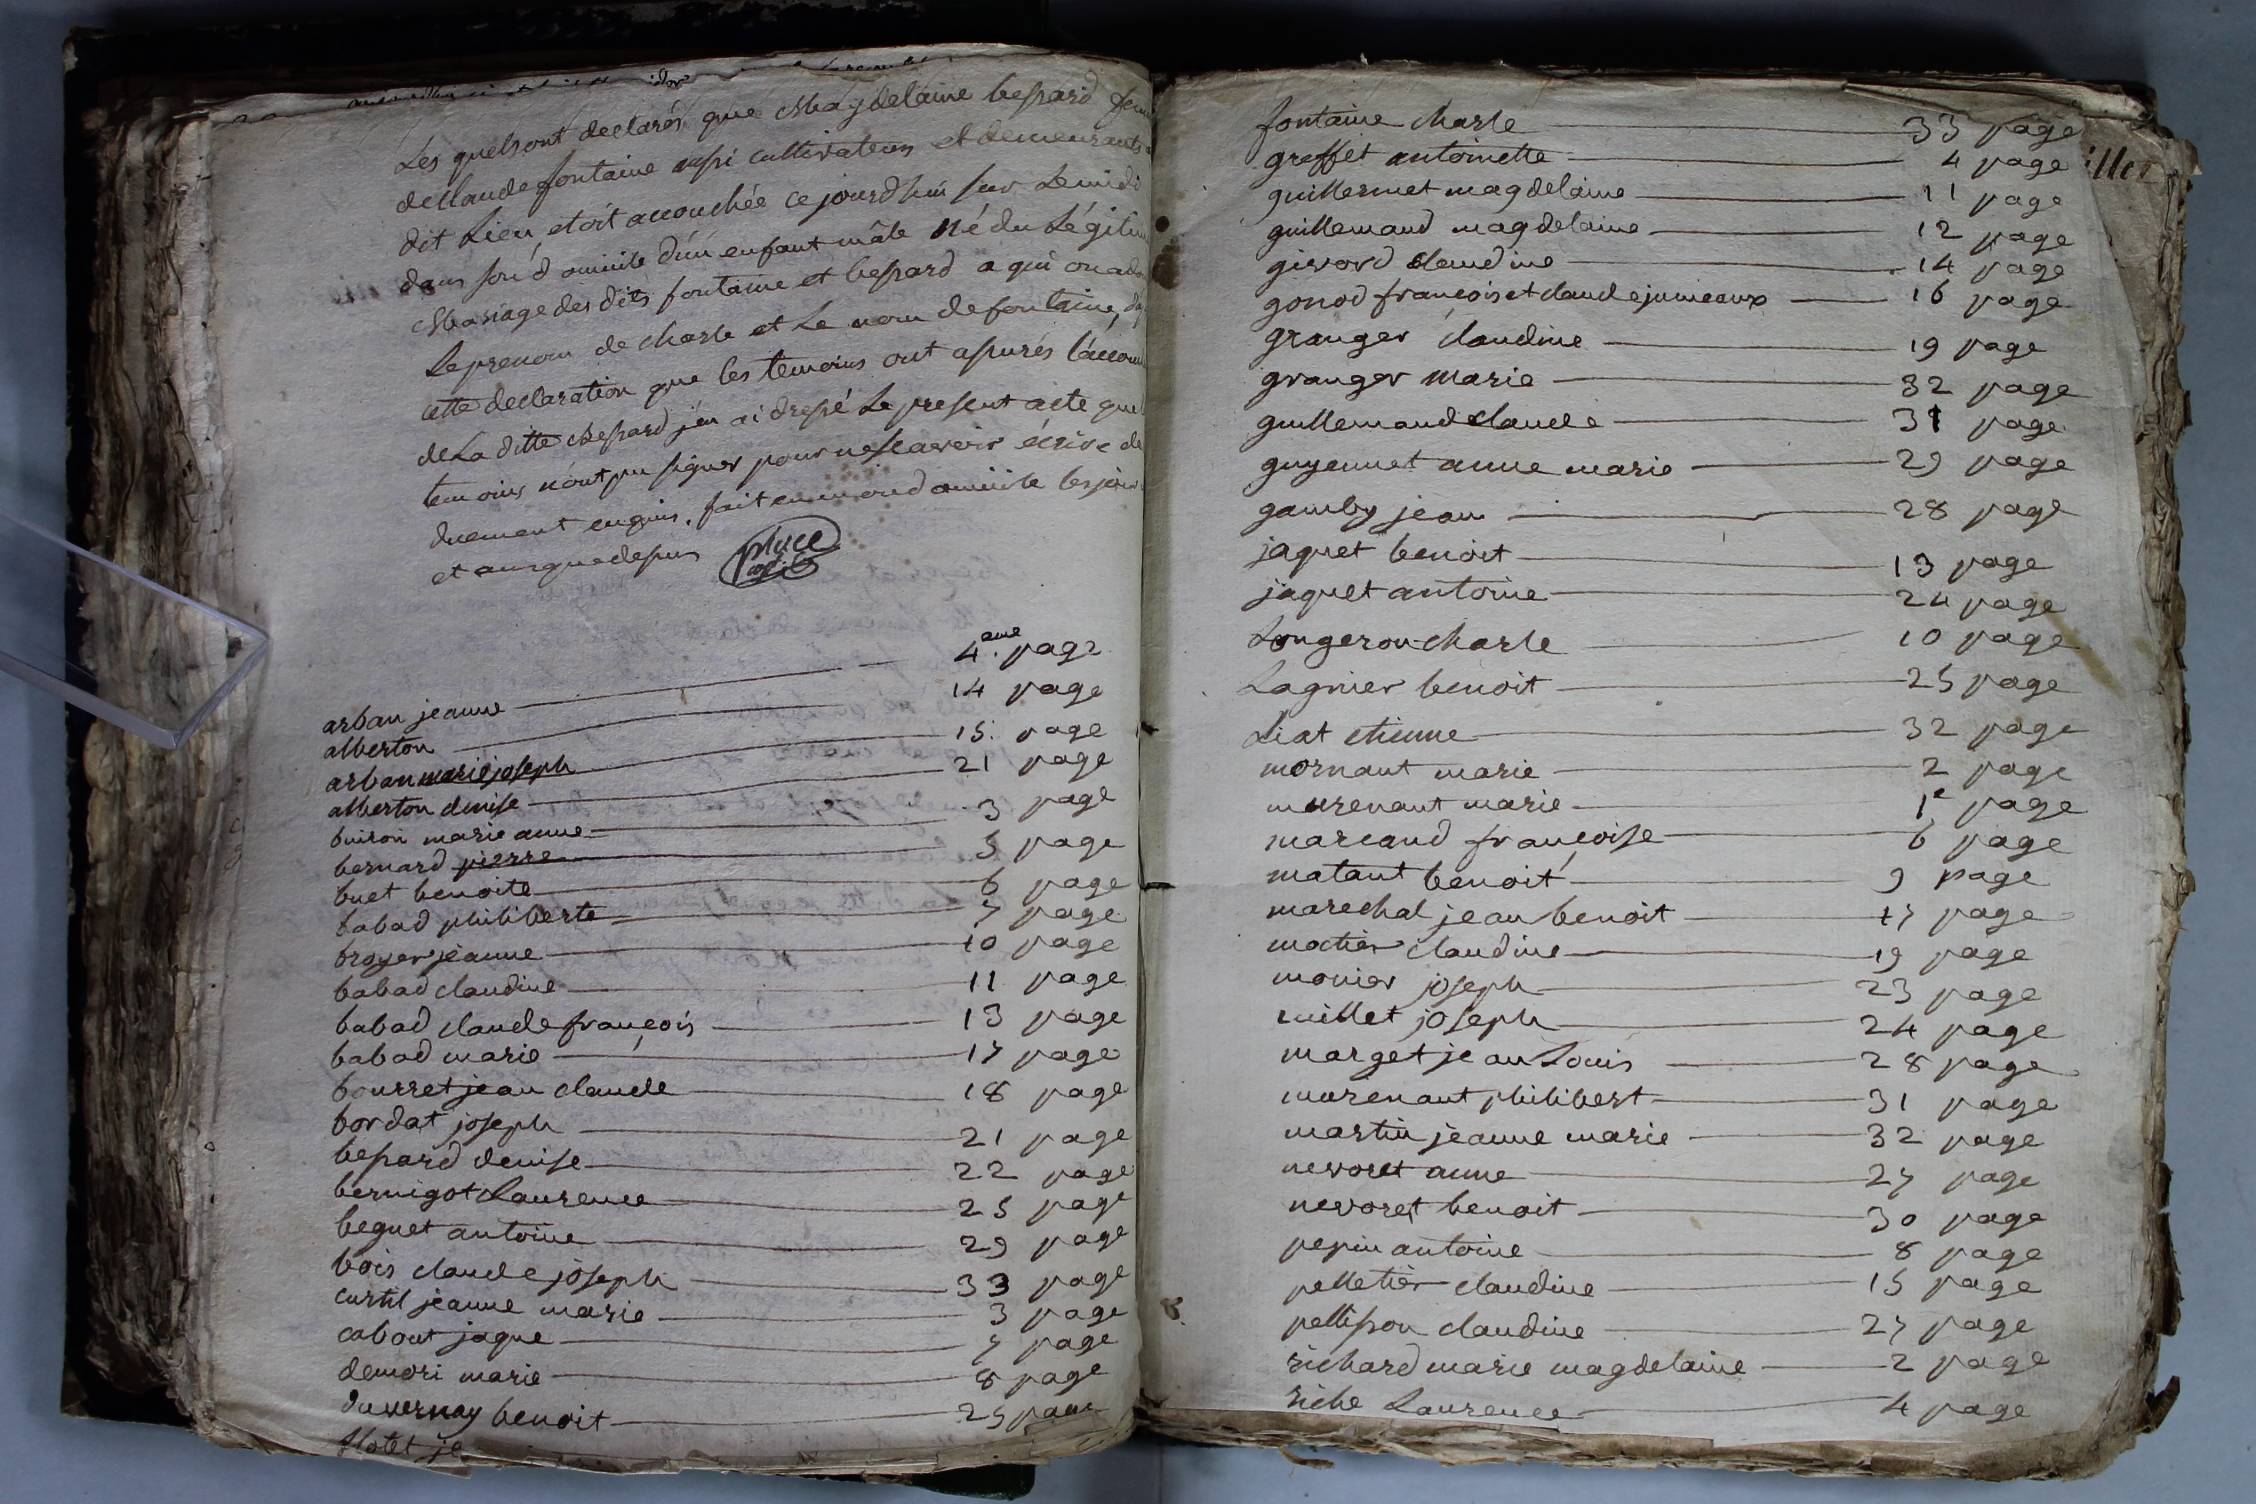 Les quels ont declarés que Magdelaine bessard
de Claude fontaine aussi cultivateurs et demeurants
dit Lieu, etoit accouchée ce jourd'hui sur Le midi
dans son domicile d'un enfant mâle né du Légitime
Mariage des dits fontaine et bessard a qui on a
Le prenom de charle et Le nom de fontaine,
cette declaration que les temoins ont assurés
de La ditte Bessard j'en ai dressé Le present acte que
temoins n'ont pu signer pour ne sçavoir écrire de
duement enquis. fait en mon domicile les jour
et an que dessus place
arban jeanne 4.eme page
alberton 14 page
arban marie joseph 15. page
alberton denise 21 page
buiron marie anne 3 page
bernard pierre 5 page
buet benoite 6 page
babad philiberte 7 page
broyer jeanne 10 page
babad claudine 11 page
babad claude françois 13 page
babad marie 17 page
bourret jean claude 18 page
bordat joseph 21 page
bessard denise 22 page
bernigot Laurence 25 page
beguet antoine 29 page
bois claude joseph 33 page
curtil jeanne marie 3 page
cabout jaque 7 page
demori marie 8 page
duvernay benoit 25 page
fontaine charle 33 page
greffet antoinette 4 page
guillermet magdelaine 11 page
guillemaud magdelaine 12 page
girord claudine 14 page
gonod françois et claude jumeaux 16 page
granger claudine 19 page
granger marie 32 page
guillemaud claude 31 page
guyennet anne marie 29 page
gamby jean 28 page
jaquet benoit 13 page
jaquet antoine 24 page
Longeron charle 10 page
Lagnier benoit 25 page
Liat etienne 32 page
mornant marie 2 page
murenant marie 1e page
marcaud françoise 6 page
matant benoit 9 page
marechal jean benoit 17 page
moctier claudine 19 page
monier joseph 23 page
millet joseph 24 page
marget jean Louis 28 page
murenant philibert 31 page
martin jeanne marie 32 page
nevoret anne 27 page
nevoret benoit 30 page
pepin antoine 8 page
pelletier claudine 15 page
pellisson claudine 27 page
richard marie magdelaine 2 page
riche Laurence 4 page